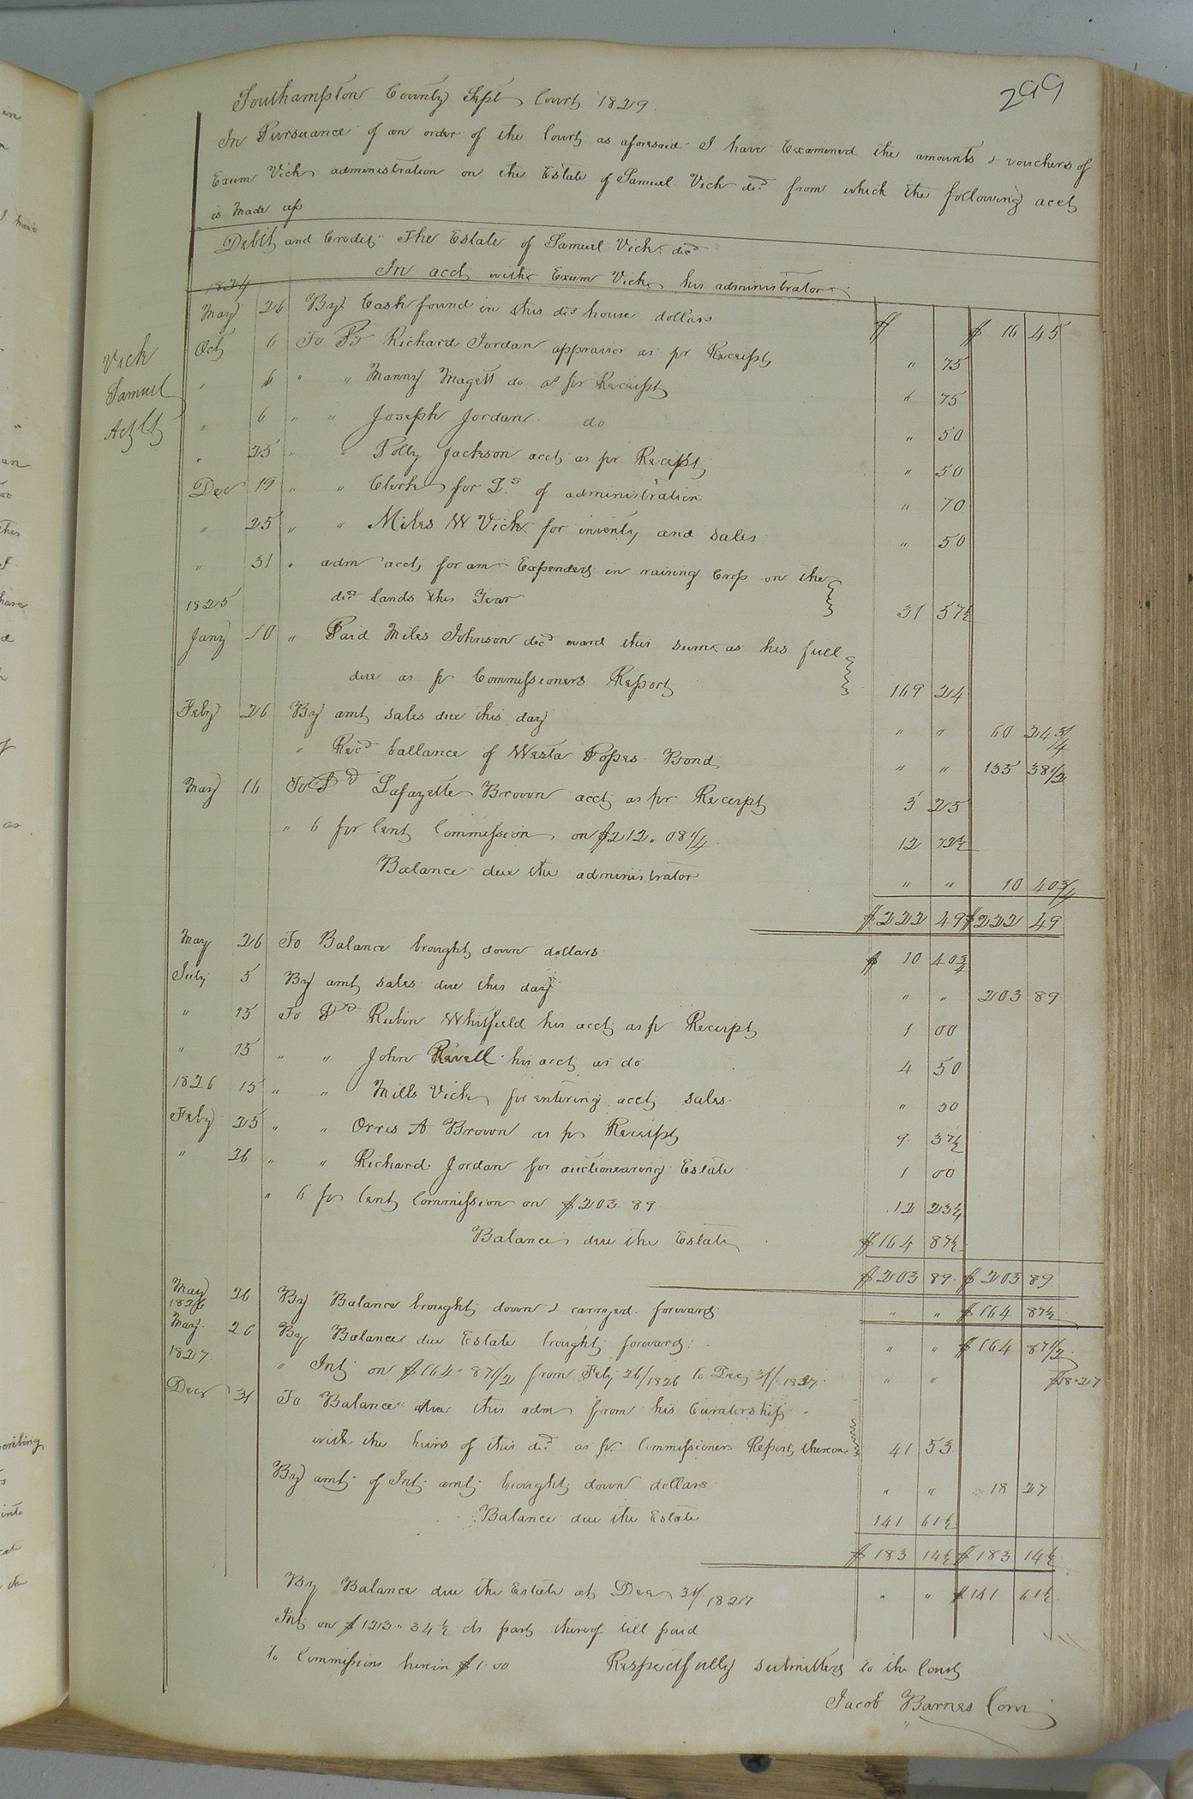 299
Southampton County Sept Court 1829
In Pursuance of an order of the Court as aforesaid I have Examened the amounts & vouchers of
Exum Vick administration on the Estate of Samuel Vick decd from which the following acct
is Made up
Debit and Credit The Estate of Samuel Vick decd
In acct with Exum Vick his administrator
Vick
Samuel
Act Ct
1824
May 26 By Cash found in this decd house dollars $ $ 16 45
Oct 6 To Pd Richard Jordan appraiser as pr Receipt " 75
" 6 " " Manny Magett do as pr Receipt " 75
" 6 " " Joseph Jordan do " 50
" 25 " " Polly Jackson acct as pr Receipt " 50
Decr 19 " " Clerk for Ls of administration " 70
" 25 " " Miles W Vick for inventy and sales " 50
" 31 " adm acct for am Expended in raising Crop on the
decd lands this Year 31 57½
1825
Jany 10 " Paid Miles Johnson decd ward this sum as his full
due as pr Commissioners Report 169 24
Feby 26 By amt sales due this day " " 60 24 3/4
" Recd ballance of Westa Popes Bond " " 135 38 1/2
May 16 To Pd Lafayette Brown acct as pr Receipt 5 25
" 6 pr Cent Commission on $212.08 1/4 12 72½
Balance due the administrator " " 10 40 3/4
$222 49 $222 49
May 26 To Balance brought down dollars $ 10 40 3/4
July 5 By amt sales due this day " " 203 89
" 15 To Pd Reubin Whitfield his acct as pr Receipt 1 00
" 15 " " John Revell his acct as do 4 50
1826 15 " " Mills Vick for entering acct sales " 50
Feby 25 " " Orres A Brown as pr Receipt 9 37½
" 26 " " Richard Jordan for auctionearing Estate 1 00
" 6 pr Cent Commission on $203 89 12 23¼
Balance due the Estate $164 87½
$203 89 $203 89
May 26 By Balance brought down & carryed forward " " $164 87½
1826
May 26 By Balance due Estate brought forward " " $164 87 1/2
1827 " Int on $164.87 1/2 from Feby 26/1826 to Dec 31/1827 " " $18.27
Decr 31 To Balance due this adm from his Curatership
with the heirs of this decd as pr Commissioners Report thereon 41 53
By amt of Int amt brought down dollars " " 18 27
Balance due the Estate 141 61½
$183 14½ $183 14½
By Balance due the Estate at Decr 31/1827 " " $141 61½
Int on $123.34½ cts part thereof till paid
To Commissions herein $1.00 Respectfully submitted to the Court
Jacob Barnes Com